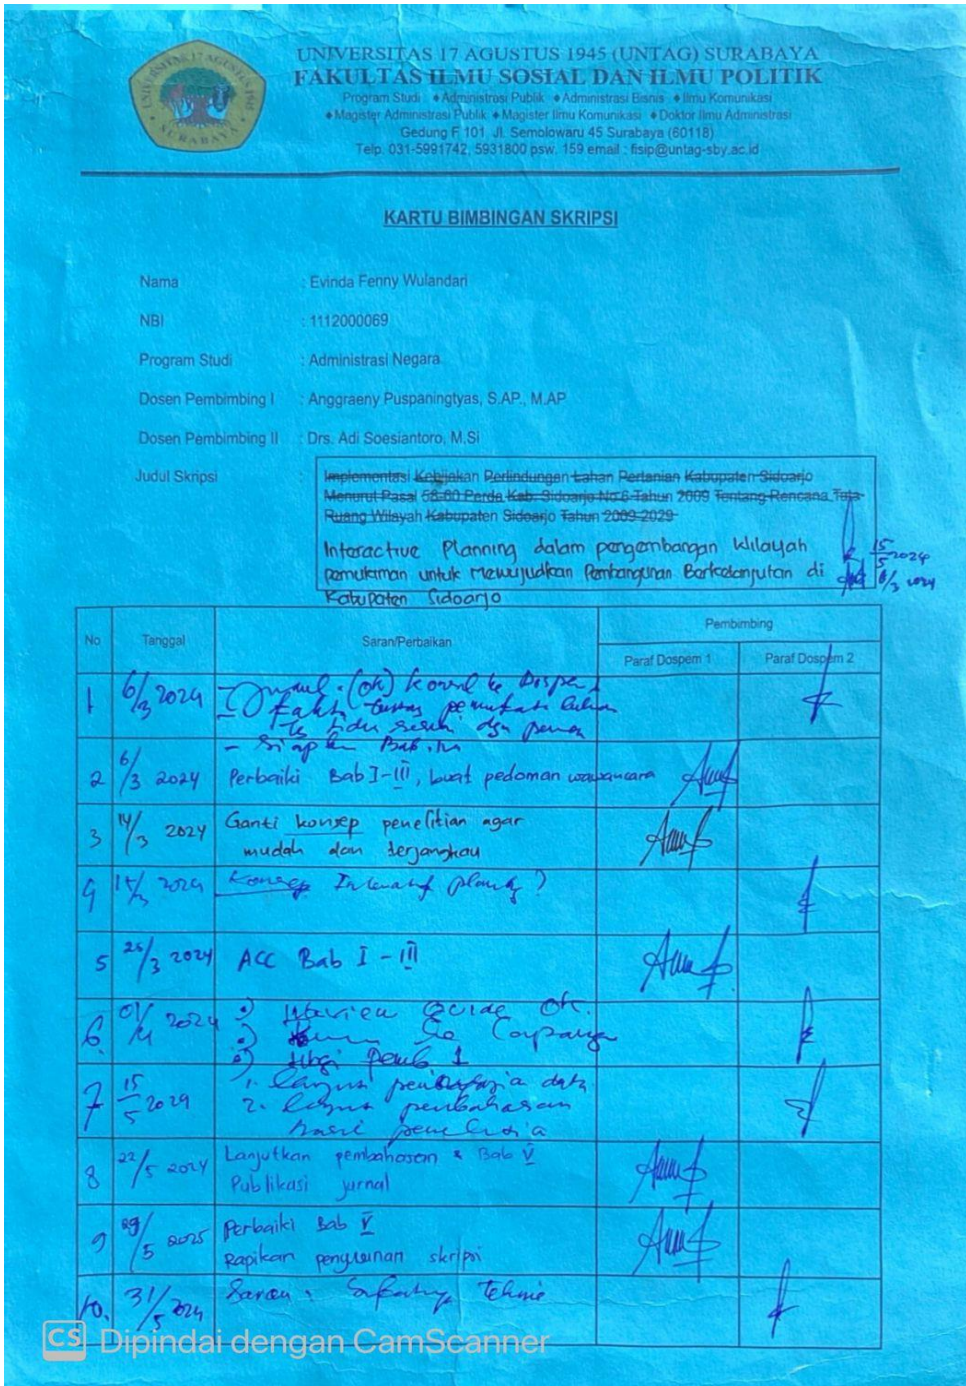 UNIVERSITAS 17 AGUSTUS 1945 (UNTAG) SURABAYA
FAKULTAS ILMU SOSIAL DAN ILMU POLITIK
Program Studi : ♦ Administrasi Publik ♦ Administrasi Bisnis ♦ Ilmu Komunikasi
♦ Magister Administrasi Publik ♦ Magister Ilmu Komunikasi ♦ Doktor Ilmu Administrasi
Gedung F 101, Jl. Semolowaru 45 Surabaya (60118)
Telp. 031-5991742, 5931800 psw. 159 email : fisip@untag-sby.ac.id
KARTU BIMBINGAN SKRIPSI
Nama : Evinda Fenny Wulandari
NBI : 1112000069
Program Studi : Administrasi Negara
Dosen Pembimbing I : Anggraeny Puspaningtyas, S.AP., M.AP
Dosen Pembimbing II : Drs. Adi Soesiantoro, M.Si
Judul Skripsi :
Implementasi Kebijakan Perlindungan Lahan Pertanian Kabupaten Sidoarjo
Menurut Pasal 58-60 Perda Kab. Sidoarjo No 6 Tahun 2009 Tentang Rencana Tata
Ruang Wilayah Kabupaten Sidoarjo Tahun 2009-2029
Interactive Planning dalam pengembangan Wilayah
pemukiman untuk Mewujudkan Pembangunan Berkelanjutan di
Kabupaten Sidoarjo
15/5 2024
6/3 2024
No Tanggal Saran/Perbaikan Pembimbing
Paraf Dospem 1 Paraf Dospem 2
1 6/3 2024 (ok)
- Siapkan Bab
2 6/3 2024 Perbaiki Bab I-III, buat pedoman wawancara
3 14/3 2024 Ganti konsep penelitian agar
mudah dan terjangkau
4 15/3 2024 Konsep ?
5 25/3 2024 ACC Bab I - III
6. 01/4 2024 Interview Guide ok.
1
7 15/5 2024 1. data
2. pembahasan
hasil
8 22/5 2024 Lanjutkan pembahasan & Bab V
Publikasi jurnal
9 29/5 2025 Perbaiki Bab V
Rapikan penyusunan skripsi
10. 31/5 2024 Saran :
CS Dipindai dengan CamScanner